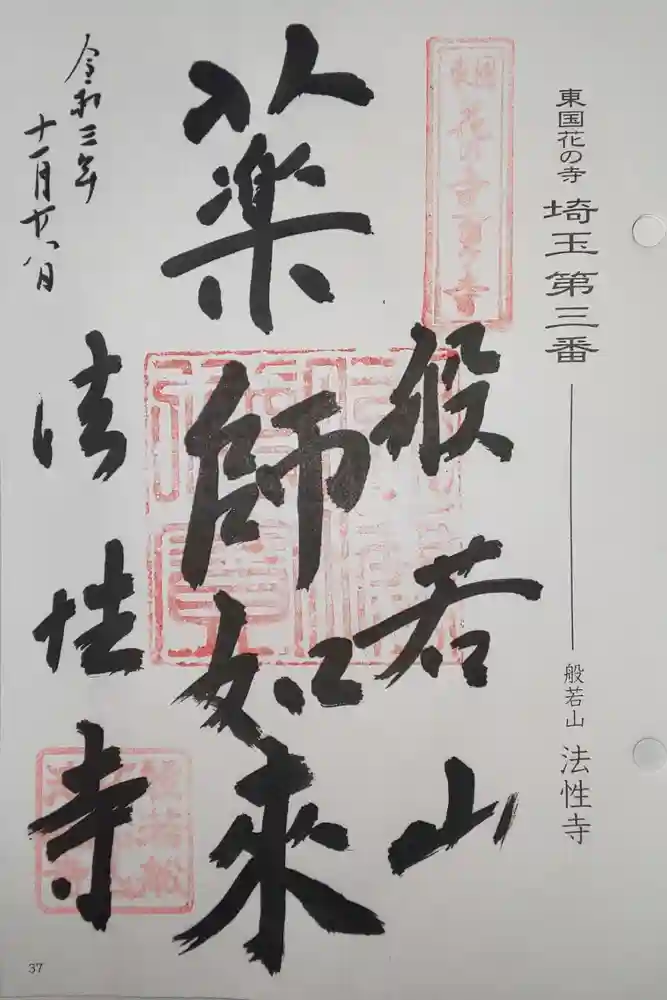 東国花の寺 埼玉 第三番 般若山 法性寺
東国
花の寺百ケ寺
般若山
薬師如來
法性寺
令和三年
十一月廿八日
37